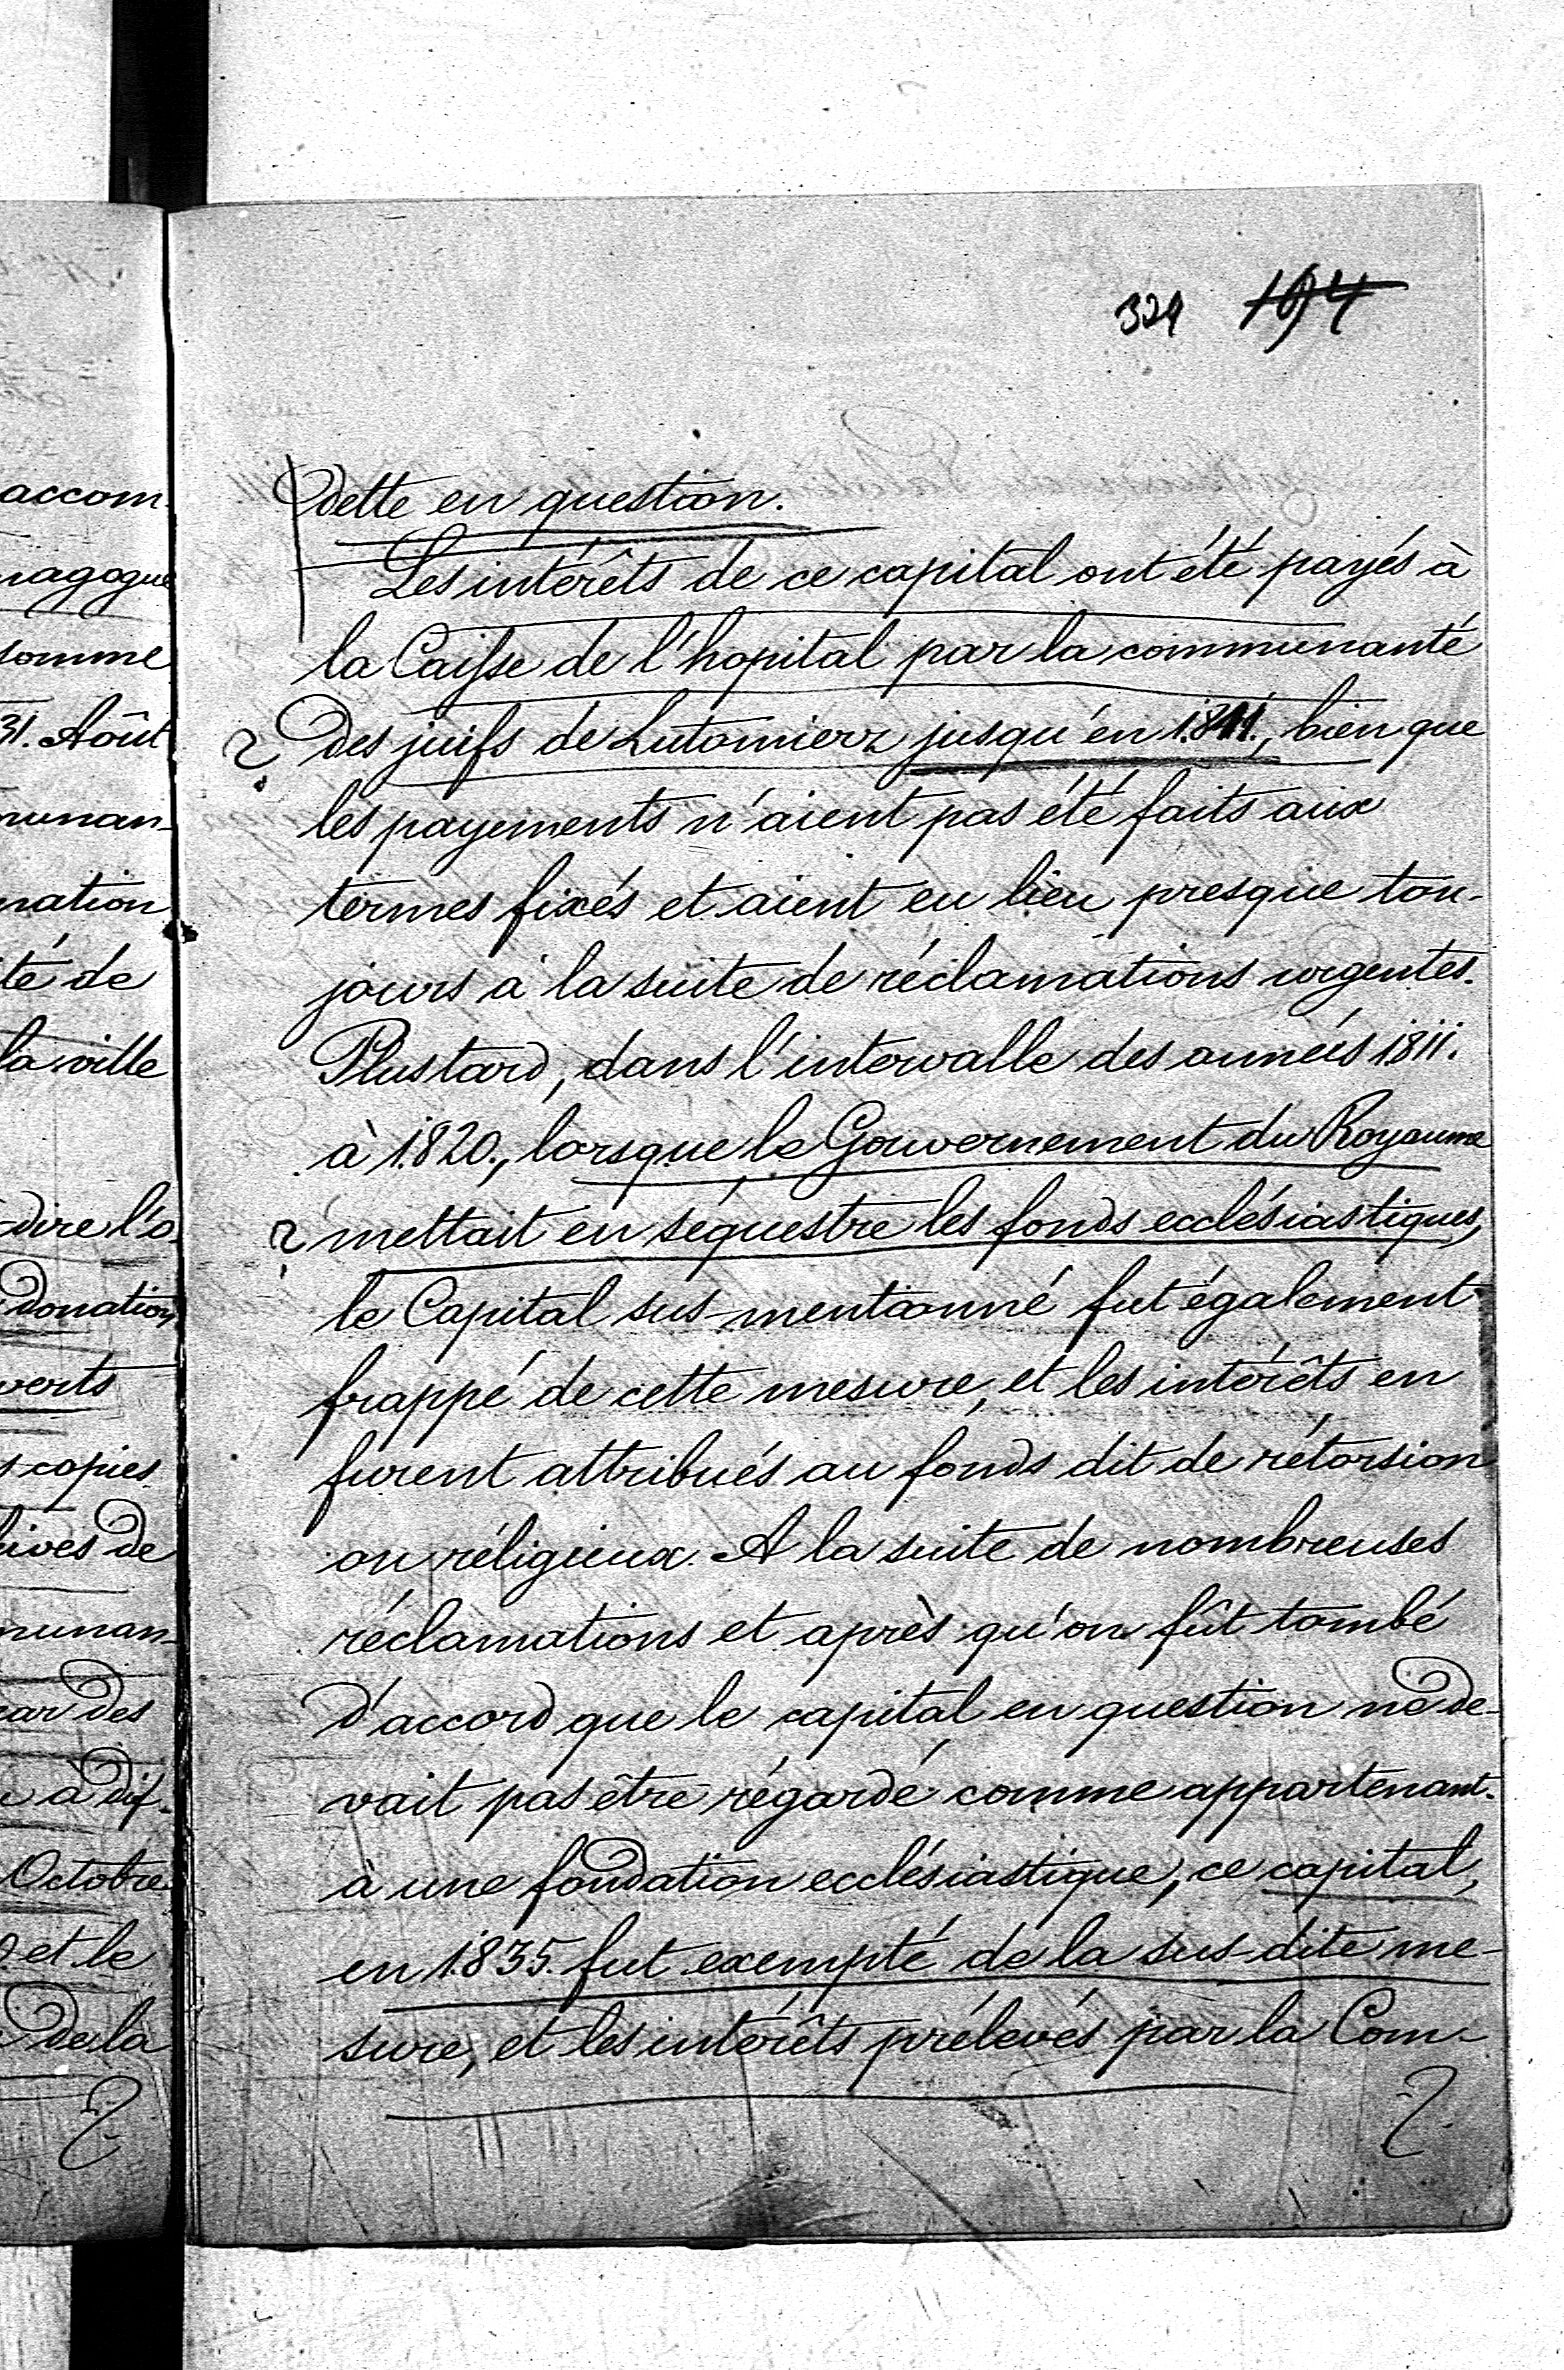 accom-
nagogue
somme
31. Août
munan-
nation
té de
la ville
dire l'o-
donation
verts
s copies
hives de
munan-
par des
à dif-
Octobre
et le
de la
324 194
dette en question.
Les intérêts de ce capital ont été payés à
la Caisse de l'hopital par la communanté
? des juifs de Lutomierz jusqu'én 1811., bien que
les payements n'aient pas été faits aux
termes fixés et aient eu lieu presque tou-
jours à la suite de réclamations urgentes.
Plustard, dans l'intervalle des années 1811.
à 1820., lorsque le Gouvernement du Royaume
? mettait en séquestre les fonds ecclésiastiques,
le Capital sus-mentionné fut également
frappé de cette mesure, et les intérêts en
furent attribués au fonds dit de rétorsion
ou réligieux. A la suite de nombreuses
réclamations et après qu'on fût tombé
d'accord que le capital en question ne de-
vait pas être régardé comme appartenant
à une fondation ecclésiastique, ce capital,
en 1835. fut exempté de la sus-dite me-
sure, et les intérêts prélevés par la Com-